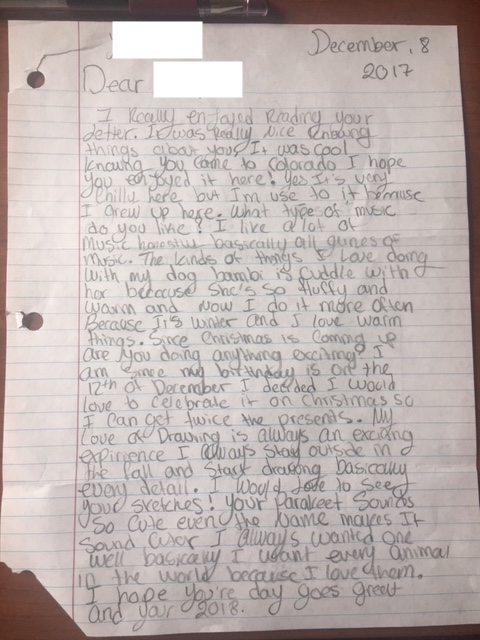 December, 8
2017
Dear
I Really enjoyed Reading your
letter. It was Really Nice knowing
things about you. It was cool
knowing you came to Colorado I hope
you enjoyed it here! Yes It's very
chilly here but Im use to it because
I grew up here. What type of music
do you like? I like a lot of
Music honestly basically all gunes of
music. The kinds of things I love doing
with my dog bambi is cuddle with
her because She's so fluffy and
warm and Now I do it more often
Because It's winter and I love warm
things. Since Christmas is coming up
are you doing anything exciting? I
am since my birthday is on the
12th of December I decided I would
love to celebrate it on Christmas so
I can get twice the presents. My
Love of Drawing is always an exciting
expirience I always stay outside in
the fall and start drawing basically
every detail. I Would love to see
your sketches! Your Parakeet Sounds
So cute even the Name makes It
Sound cuter I always wanted one
Well basically I want every animal
in the world because I love them.
I hope you're day goes great
and your 2018.